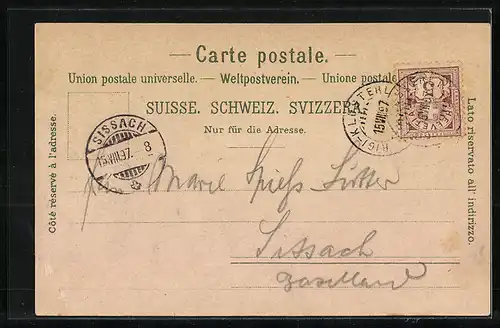 — Carte postale. —
Union postale universelle. — Weltpostverein. — Unione postale
SUISSE. SCHWEIZ. SVIZZERA.
Nur für die Adresse.
Côté réservé à l'adresse.
Lato riservato all' indirizzo.
SISSACH
15.VIII.97. 8
15 VIII 97
Marie Spiess Sutter
Sissach
Baselland